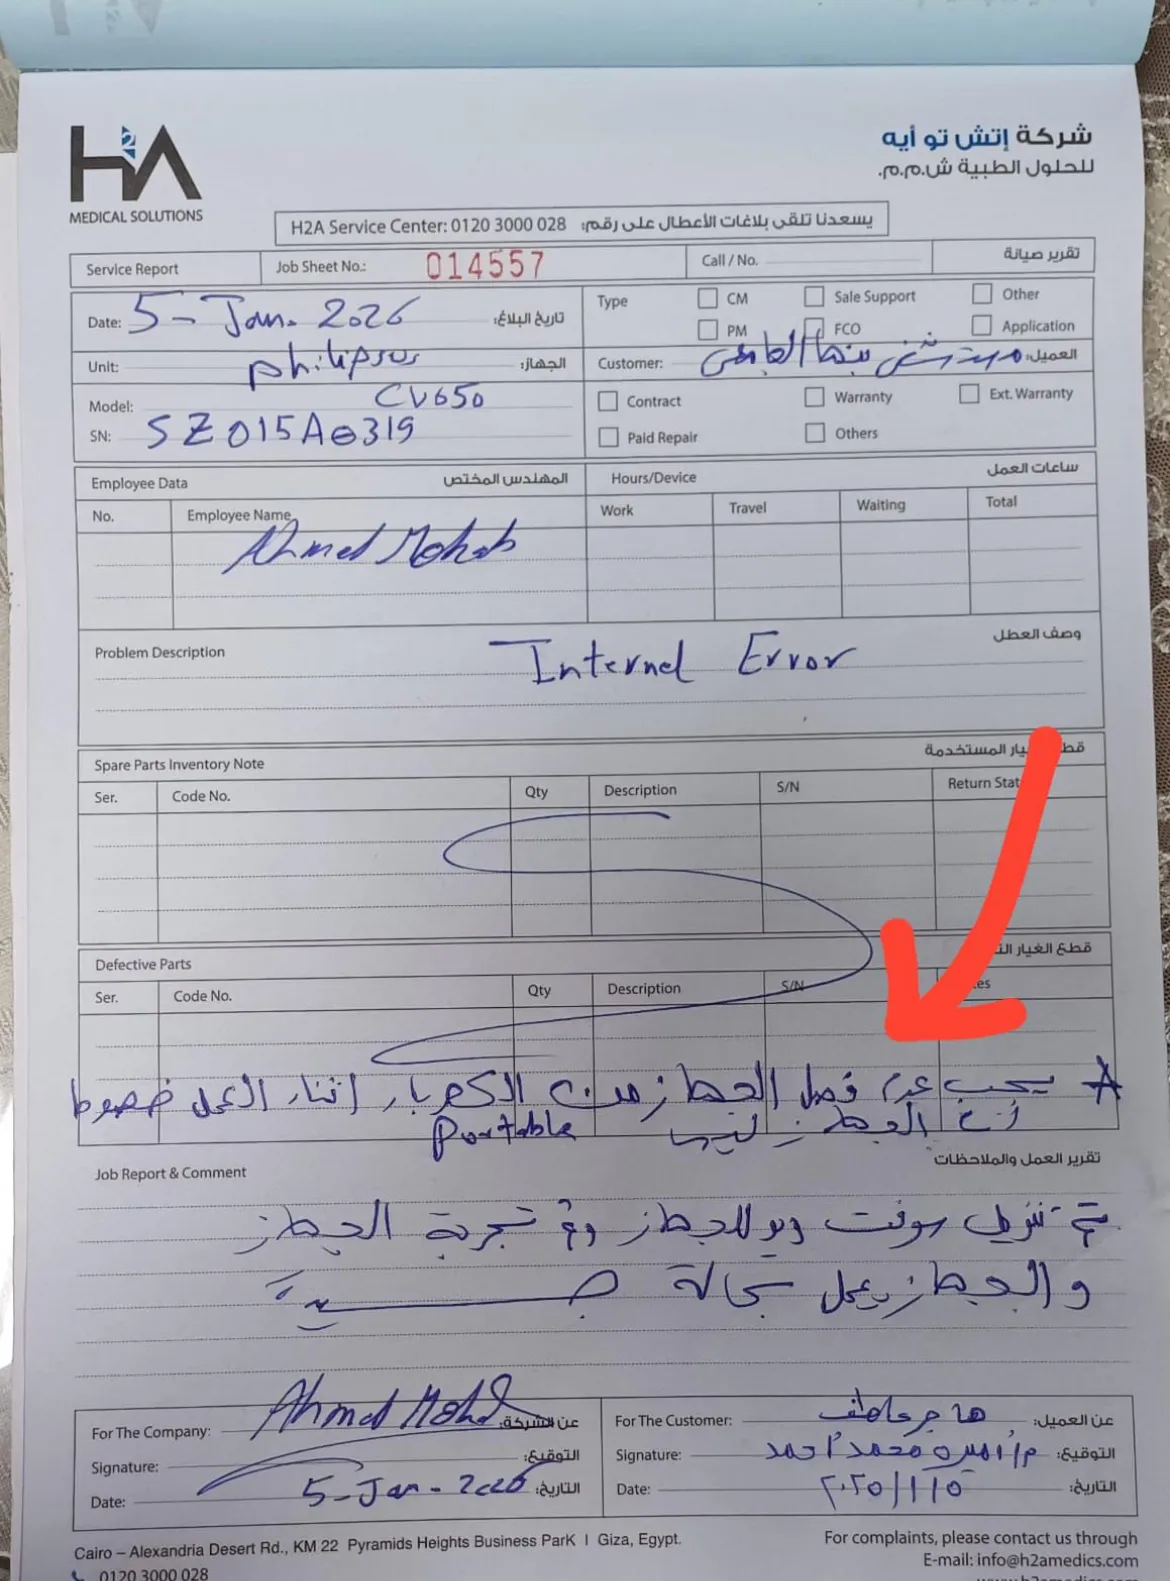 H2A
MEDICAL SOLUTIONS
شركة إتش تو أيه
للحلول الطبية ش.م.م.
H2A Service Center: 0120 3000 028 يسعدنا تلقى بلاغات الأعطال على رقم:
Service Report Job Sheet No.: 014557 Call / No. تقرير صيانة
Date: 5 - Jan. 2026 تاريخ البلاغ:
Type CM Sale Support Other
PM FCO Application
Unit: philips الجهاز:
Customer: مستشفى بنها الجامعى العميل:
Model: CV650
SN: SZ015A0319
Contract Warranty Ext. Warranty
Paid Repair Others
Employee Data المهندس المختص Hours/Device ساعات العمل
No. Employee Name Work Travel Waiting Total
Ahmed Mohab
Problem Description وصف العطل
Internel Error
Spare Parts Inventory Note
Ser. Code No. Qty Description S/N Return Stat
Defective Parts قطع الغيار
Ser. Code No. Qty Description S/N
يجب عدم فصل الجهاز من الكهرباء اثناء العمل خصوصا
الجهاز ليس portable
Job Report & Comment تقرير العمل والملاحظات:
تم تنزيل سوفت وير للجهاز وتم تجربة الجهاز
والجهاز يعمل بحالة جيدة
For The Company: Ahmed Mohab عن الشركة:
Signature: التوقيع:
Date: 5-Jan-2026 التاريخ:
For The Customer: هاجر عاطف عن العميل:
Signature: م/ اميرة محمد احمد التوقيع:
Date: ٢٠٢٥/١/٥ التاريخ:
Cairo – Alexandria Desert Rd., KM 22 Pyramids Heights Business ParK | Giza, Egypt.
0120 3000 028
For complaints, please contact us through
E-mail: info@h2amedics.com